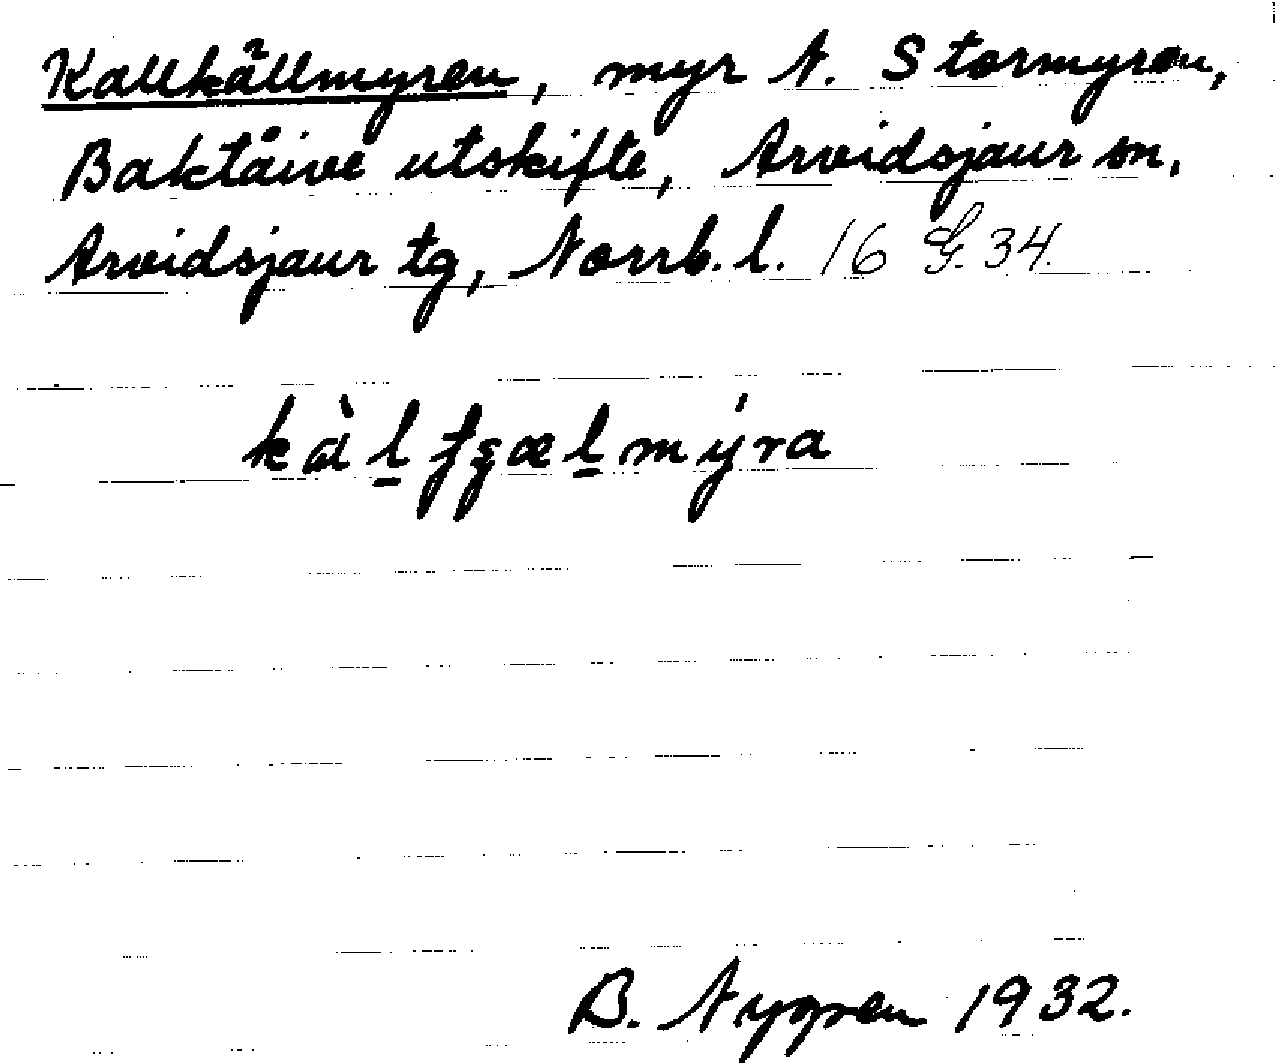 Kallkällmyren, myr N. Stormyren,
Baktåive utskifte, Arvidsjaur sn,
Arvidsjaur tg, Norrb. l. 16 G. 34.
kàl̲ fʂæl̲mýra
B. Nygren 1932.